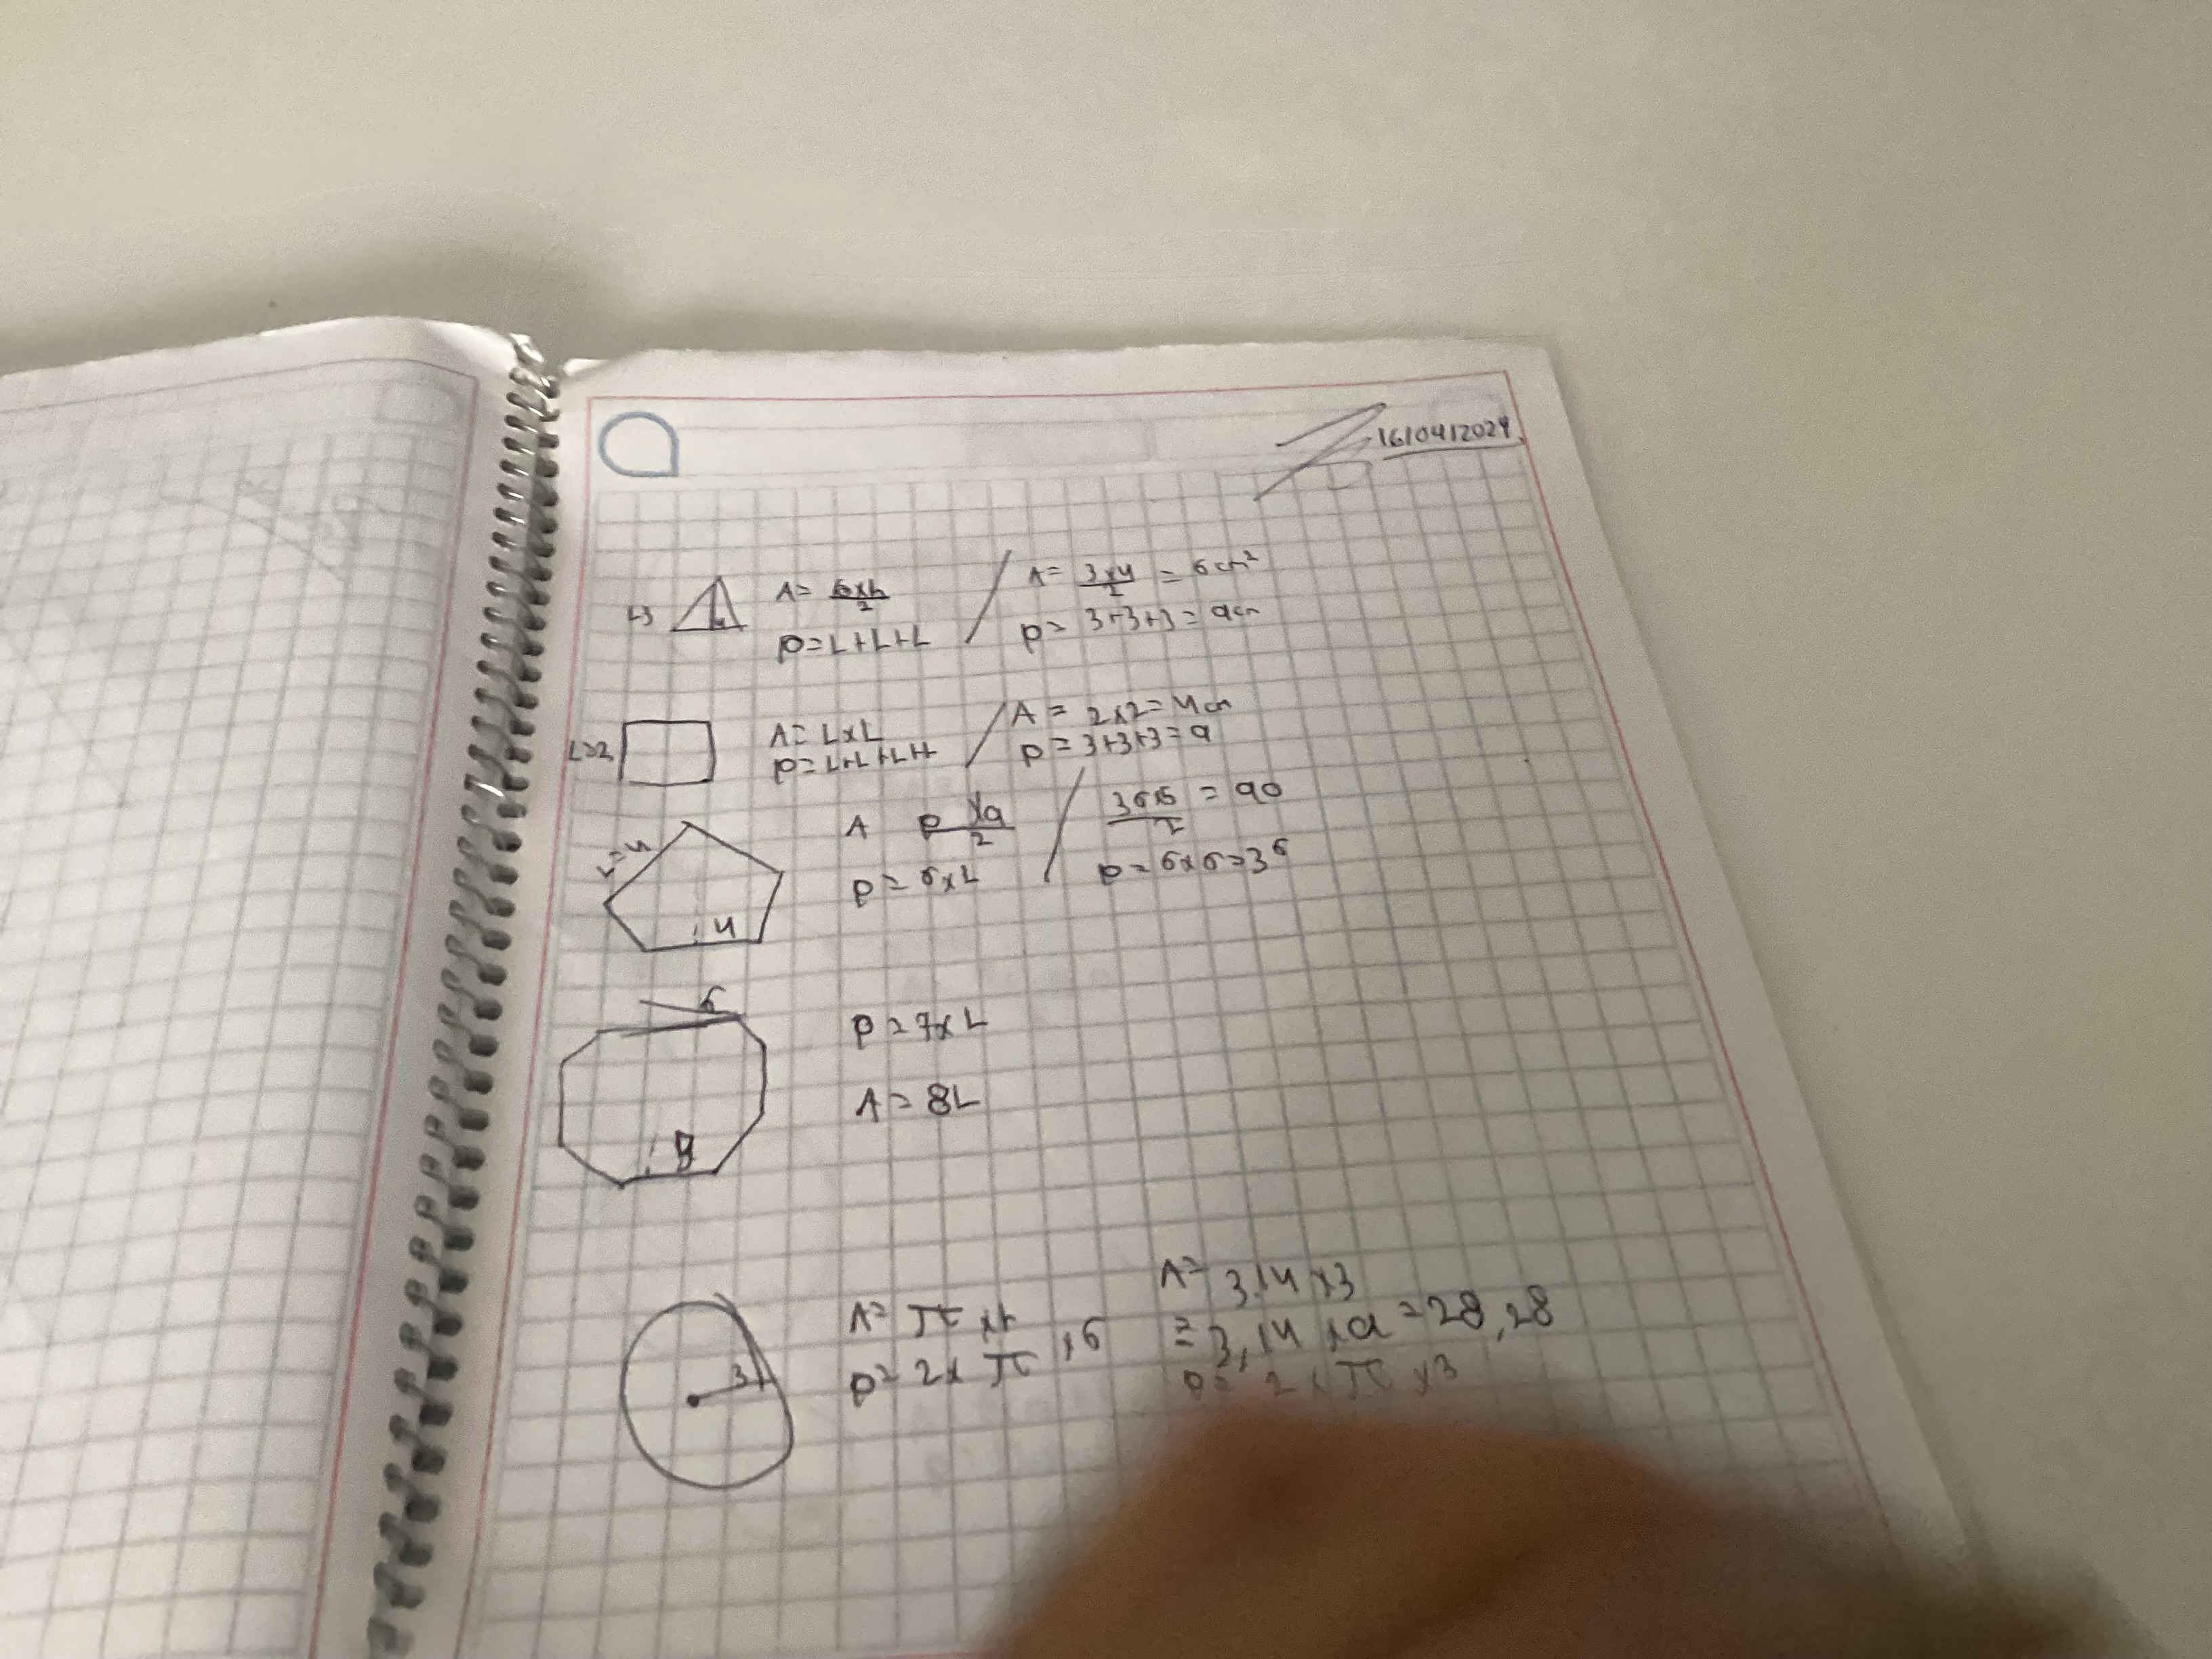 16/04/2024
L3
A= bxh/2 / A= 3x4/2 = 6 cm²
P=L+L+L / P= 3+3+3= 9cm
L=2
A= LxL / A= 2x2=4cm
P=L+L+L+L / P=3+3+3=9
L=4
4
A P xa/2 / 36x5/2 = 90
P= 6xL / P=6x6=36
6
8
P=7xL
A= 8L
3
A= π xr A= 3.14 x3
P= 2x π x6 = 3,14 x9=28,28
P= 2 x π x3